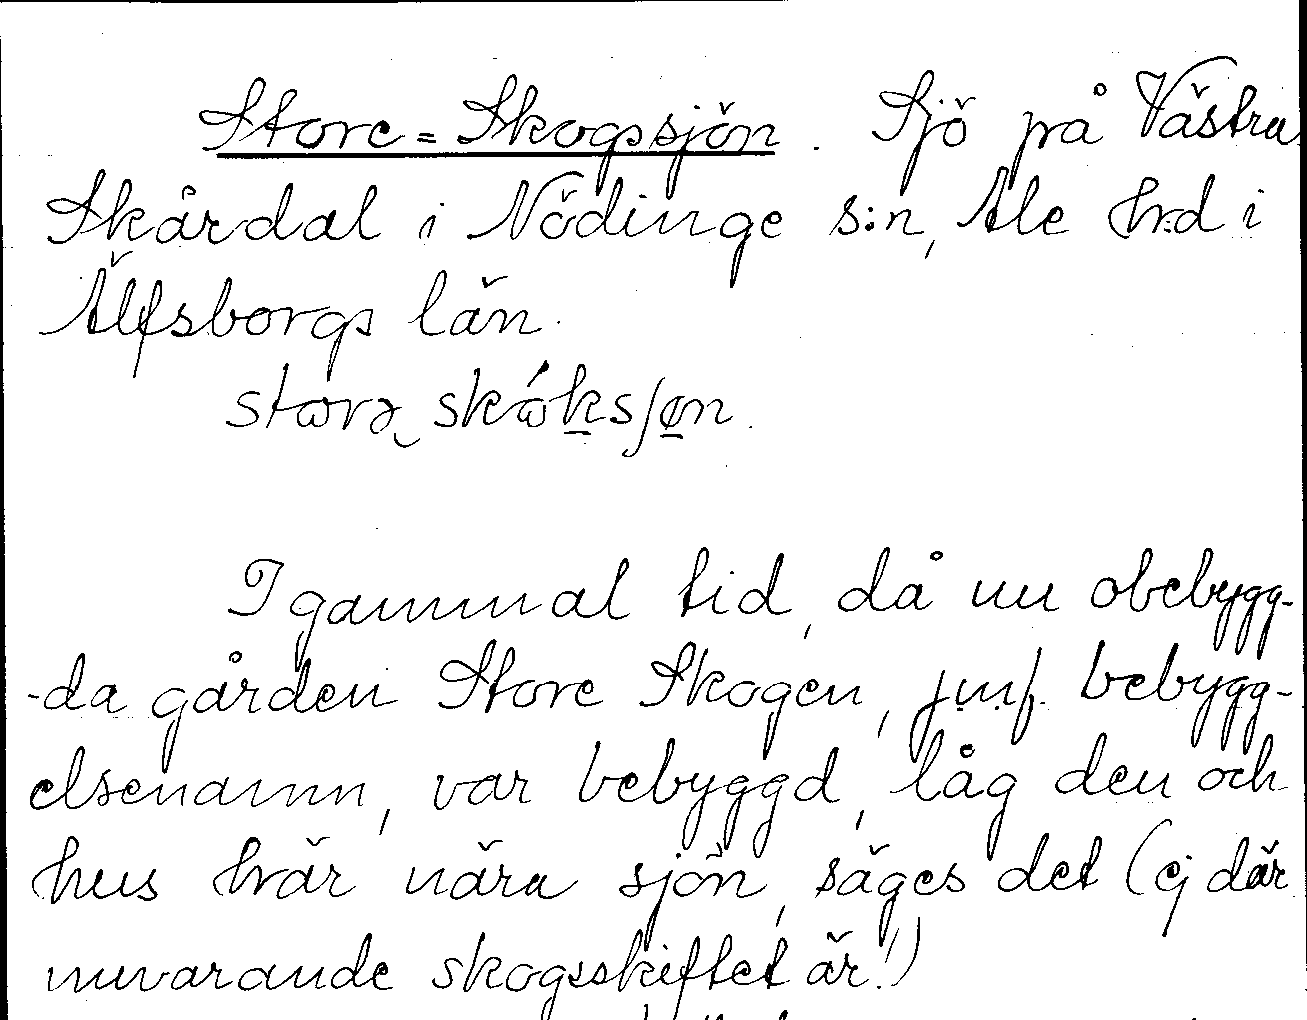 Store=Skogssjön. Sjö på Västra
Skårdal i Nödinge s:n, Ale hrd i
Älfsborgs län.
I gammal tid, då nu obebygg-
-da gården Store Skogen, jmf. bebygg-
elsenamn, var bebyggd, låg den och
hus här nära sjön, säges det (ej där
nuvarande skogsskiftet är!)